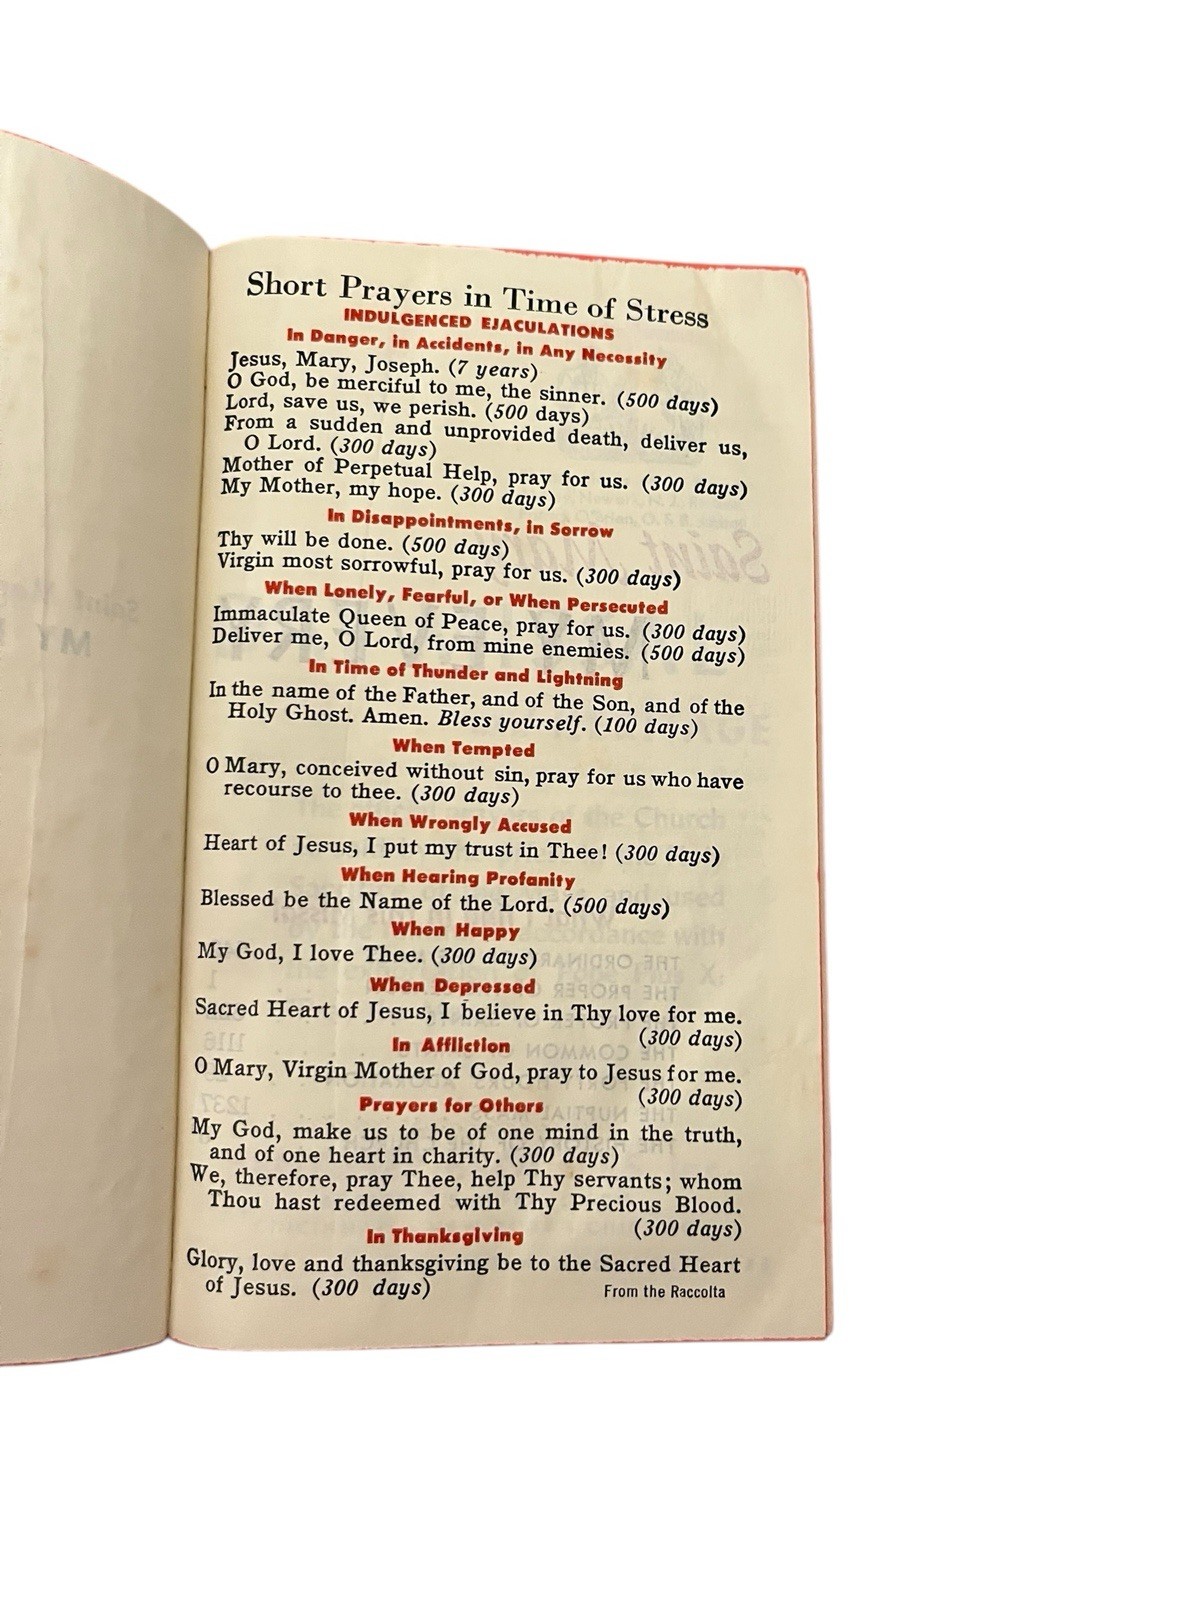 Short Prayers in Time of Stress
INDULGENCED EJACULATIONS
In Danger, in Accidents, in Any Necessity
Jesus, Mary, Joseph. (7 years)
O God, be merciful to me, the sinner. (500 days)
Lord, save us, we perish. (500 days)
From a sudden and unprovided death, deliver us,
O Lord. (300 days)
Mother of Perpetual Help, pray for us. (300 days)
My Mother, my hope. (300 days)
In Disappointments, in Sorrow
Thy will be done. (500 days)
Virgin most sorrowful, pray for us. (300 days)
When Lonely, Fearful, or When Persecuted
Immaculate Queen of Peace, pray for us. (300 days)
Deliver me, O Lord, from mine enemies. (500 days)
In Time of Thunder and Lightning
In the name of the Father, and of the Son, and of the
Holy Ghost. Amen. Bless yourself. (100 days)
When Tempted
O Mary, conceived without sin, pray for us who have
recourse to thee. (300 days)
When Wrongly Accused
Heart of Jesus, I put my trust in Thee! (300 days)
When Hearing Profanity
Blessed be the Name of the Lord. (500 days)
When Happy
My God, I love Thee. (300 days)
When Depressed
Sacred Heart of Jesus, I believe in Thy love for me.
(300 days)
In Affliction
O Mary, Virgin Mother of God, pray to Jesus for me.
(300 days)
Prayers for Others
My God, make us to be of one mind in the truth,
and of one heart in charity. (300 days)
We, therefore, pray Thee, help Thy servants; whom
Thou hast redeemed with Thy Precious Blood.
(300 days)
In Thanksgiving
Glory, love and thanksgiving be to the Sacred Heart
of Jesus. (300 days)
From the Raccolta